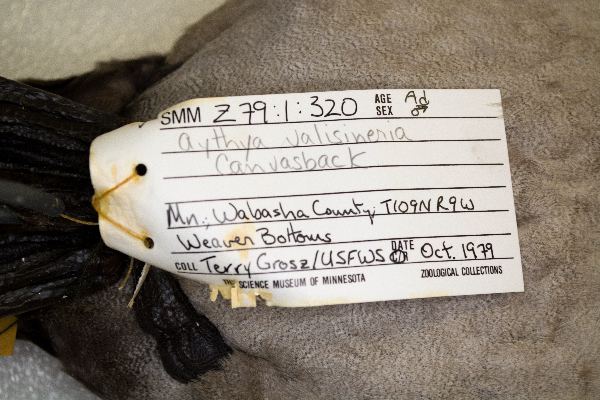 SMM Z79:1:320 AGE SEX Ad ♂
aythya valisineria
Canvasback
Mn.; Wabasha County; T109N R9W
Weaver Bottoms
COLL Terry Grosz/USFWS DATE Oct. 1979
THE SCIENCE MUSEUM OF MINNESOTA ZOOLOGICAL COLLECTIONS